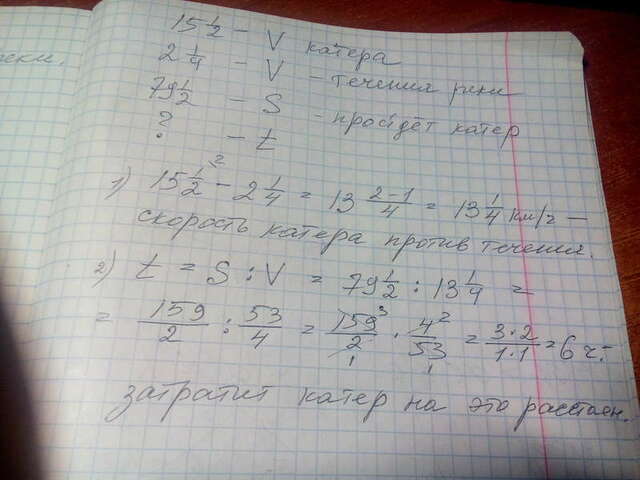 15 1/2 - V катера
2 1/4 - V - течения реки
79 1/2 - S - пройдёт катер
? - t
1) 15 1/2 ² - 2 1/4 = 13 (2-1)/4 = 13 1/4 км/ч -
скорость катера против течения.
2) t = S : V = 79 1/2 : 13 1/4 =
= 159/2 : 53/4 = 159 ³/2 ₁ · 4 ²/53 ₁ = 3·2/1·1 = 6 ч.
затратит катер на это расстоян.